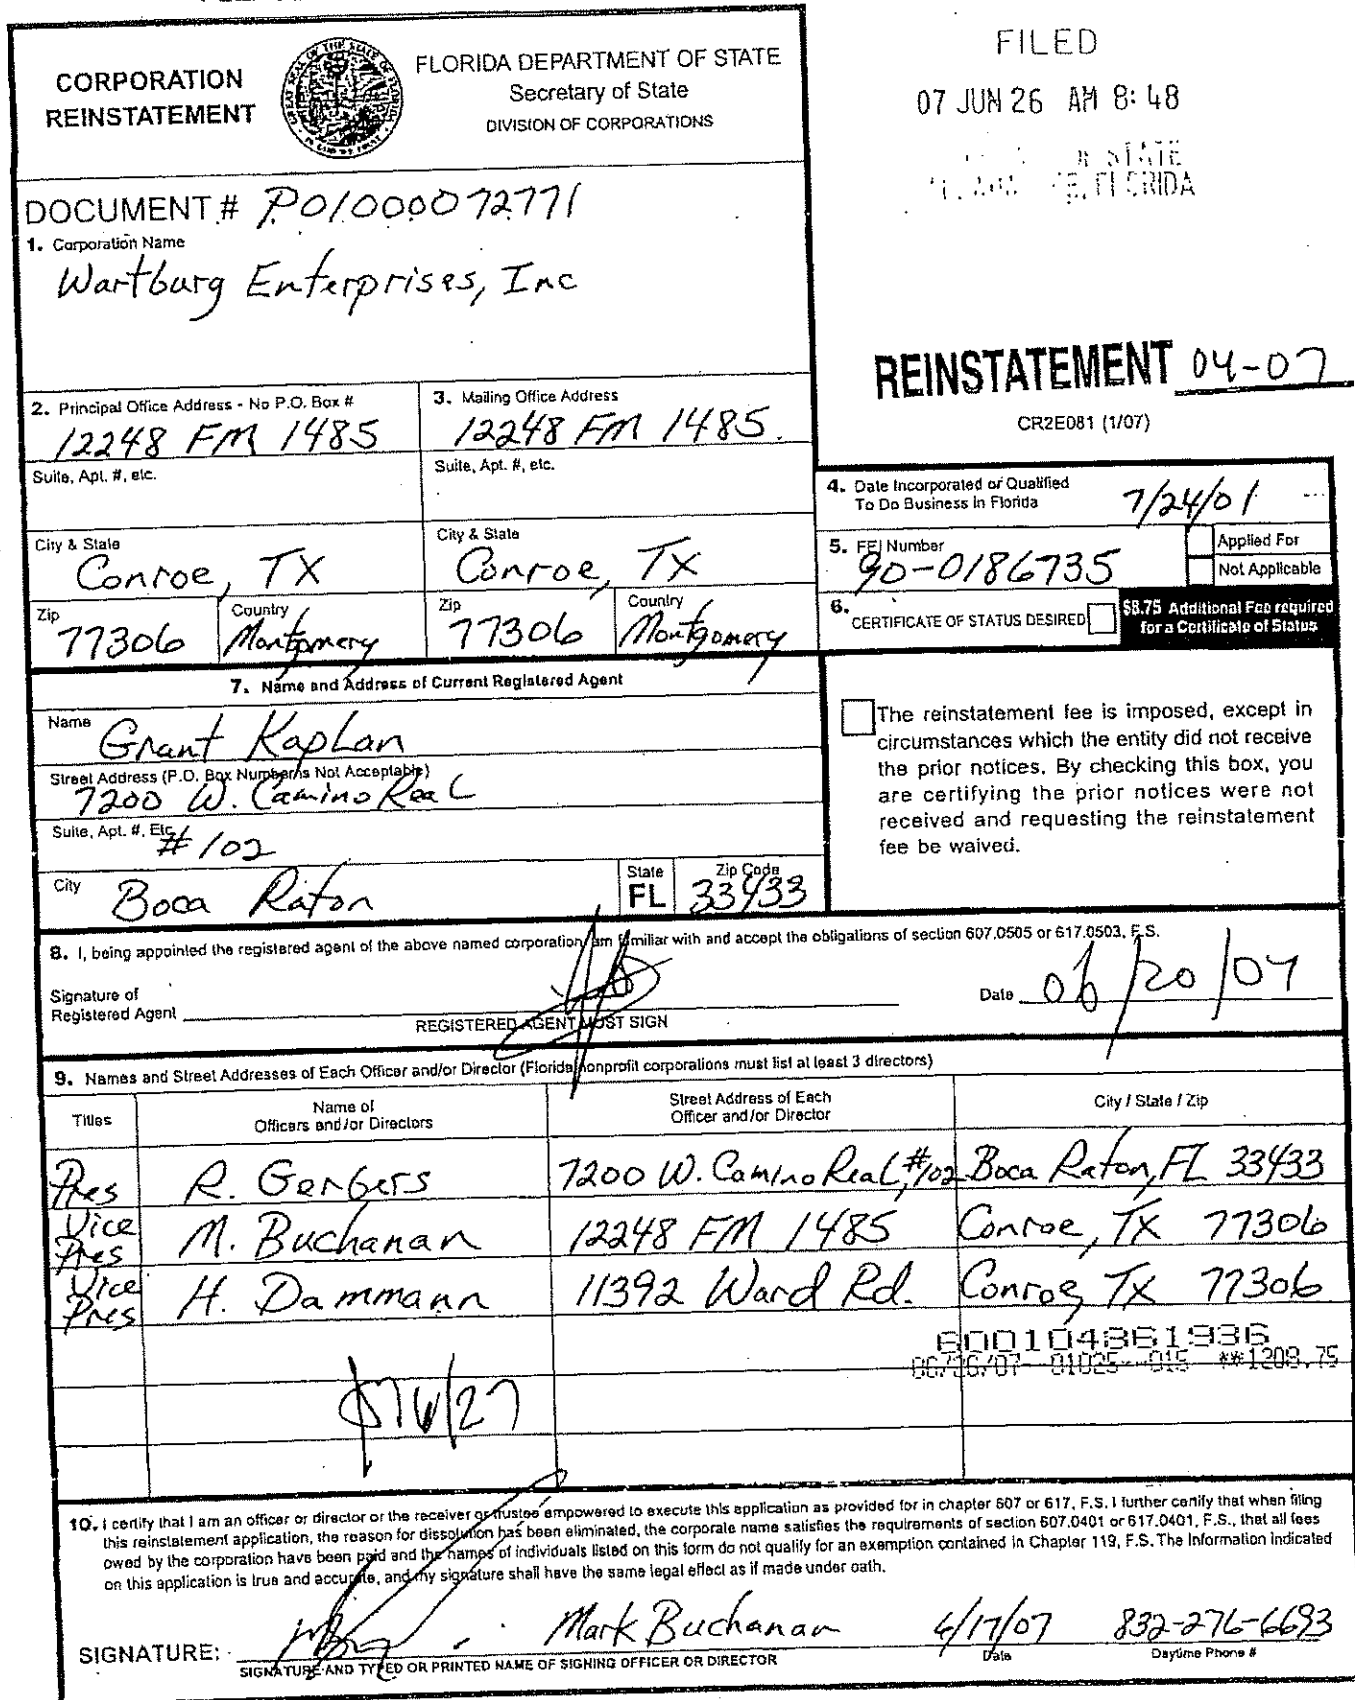 CORPORATION
REINSTATEMENT
FLORIDA DEPARTMENT OF STATE
Secretary of State
DIVISION OF CORPORATIONS
FILED
07 JUN 26 AM 8:48
STATE
FLORIDA
DOCUMENT # P01000072771
1. Corporation Name
Wartburg Enterprises, Inc
REINSTATEMENT 04-07
CR2E081 (1/07)
2. Principal Office Address - No P.O. Box #
12248 FM 1485
3. Mailing Office Address
12248 FM 1485
Suite, Apt. #, etc.
Suite, Apt. #, etc.
4. Date Incorporated or Qualified
To Do Business in Florida
7/24/01
City & State
Conroe, TX
City & State
Conroe, TX
5. FEI Number
90-0186735
Applied For
Not Applicable
Zip
77306
Country
Montgomery
Zip
77306
Country
Montgomery
6. CERTIFICATE OF STATUS DESIRED
$8.75 Additional Fee required
for a Certificate of Status
7. Name and Address of Current Registered Agent
Name
Grant Kaplan
Street Address (P.O. Box Number is Not Acceptable)
7200 W. Camino Real
Suite, Apt. #, Etc.
#102
City
Boca Raton
State
FL
Zip Code
33433
The reinstatement fee is imposed, except in
circumstances which the entity did not receive
the prior notices. By checking this box, you
are certifying the prior notices were not
received and requesting the reinstatement
fee be waived.
8. I, being appointed the registered agent of the above named corporation, am familiar with and accept the obligations of section 607.0505 or 617.0503, F.S.
Signature of
Registered Agent
REGISTERED AGENT MUST SIGN
Date 06/20/07
9. Names and Street Addresses of Each Officer and/or Director (Florida nonprofit corporations must list at least 3 directors)
Titles
Name of
Officers and/or Directors
Street Address of Each
Officer and/or Director
City / State / Zip
Pres R. Gerbers 7200 W. Camino Real, #102 Boca Raton, FL 33433
Vice Pres M. Buchanan 12248 FM 1485 Conroe, TX 77306
Vice Pres H. Dammann 11392 Ward Rd. Conroe, TX 77306
600104861936
06/26/07--01025--015 **1208.75
10. I certify that I am an officer or director or the receiver or trustee empowered to execute this application as provided for in chapter 607 or 617, F.S. I further certify that when filing
this reinstatement application, the reason for dissolution has been eliminated, the corporate name satisfies the requirements of section 607.0401 or 617.0401, F.S., that all fees
owed by the corporation have been paid and the names of individuals listed on this form do not qualify for an exemption contained in Chapter 119, F.S. The information indicated
on this application is true and accurate, and my signature shall have the same legal effect as if made under oath.
SIGNATURE: Mark Buchanan 6/17/07 832-276-6693
SIGNATURE AND TYPED OR PRINTED NAME OF SIGNING OFFICER OR DIRECTOR
Date
Daytime Phone #